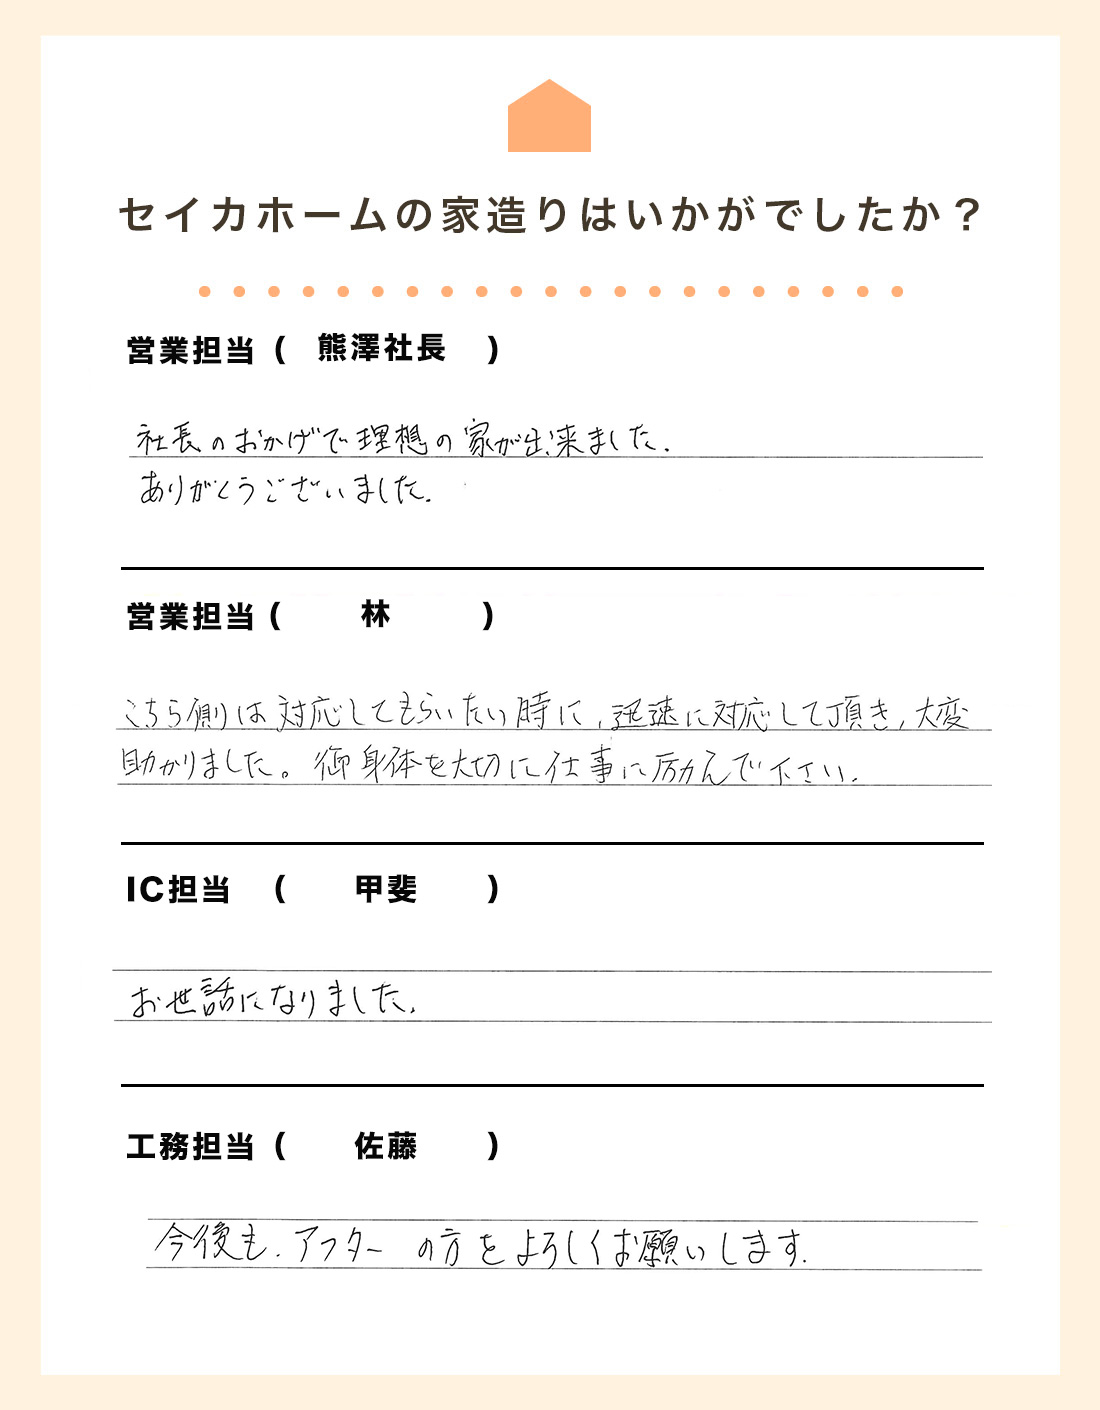 セイカホームの家造りはいかがでしたか？
営業担当 ( 熊澤社長 )
社長のおかげで理想の家が出来ました.
ありがとうございました.
営業担当 ( 林 )
こちら側は対応してもらいたい時に,迅速に対応して頂き,大変
助かりました。御身体を大切に仕事に励んで下さい.
IC担当 ( 甲斐 )
お世話になりました.
工務担当 ( 佐藤 )
今後も.アフターの方をよろしくお願いします.